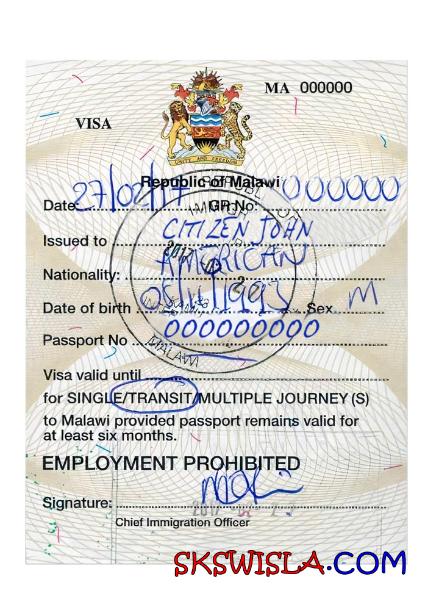 MA 000000
VISA
UNITY AND FREEDOM
Republic of Malawi
Date: 27/02/17 GR No: 000000
Issued to CITIZEN JOHN
Nationality: AMERICAN
Date of birth Sex M
Passport No 000000000
Visa valid until
for SINGLE/TRANSIT/MULTIPLE JOURNEY (S)
to Malawi provided passport remains valid for
at least six months.
EMPLOYMENT PROHIBITED
Signature:
Chief Immigration Officer
MALAWI
SKSWISLA.COM